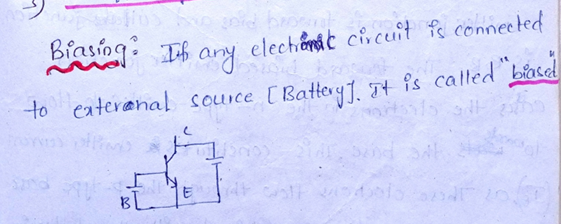 5)
Biasing: If any electronic circuit is connected
to exteranal source [Battery]. It is called "biased"
C
B E